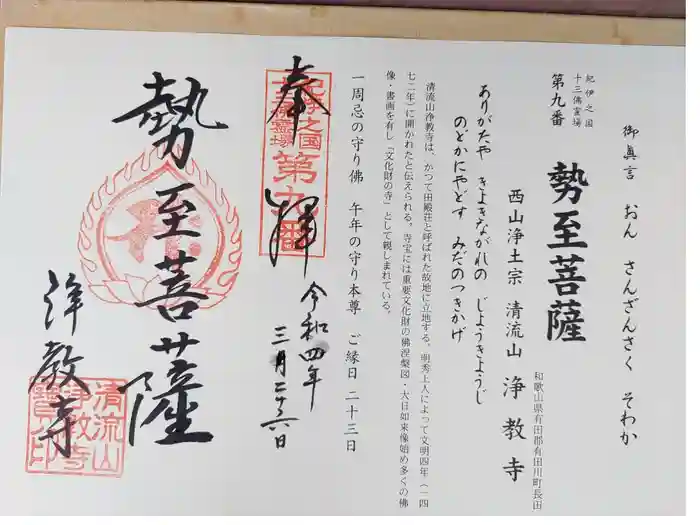 御眞言　おん　さんざんさく　そわか
紀伊之国
十三佛霊場
第九番
勢至菩薩
和歌山県有田郡有田川町長田
西山浄土宗　清流山　浄教寺
ありがたや　きよきながれの　じようきようじ
のどかにやどす　みだのつきかげ
清流山浄教寺は、かつて田殿荘と呼ばれた故地に立地する。明秀上人によって文明四年（一四
七二年）に開かれたと伝えられる。寺宝には重要文化財の佛涅槃図・大日如来像始め多くの佛
像・書画を有し『文化財の寺』として親しまれている。
一周忌の守り佛　午年の守り本尊　ご縁日　二十三日
奉拝
紀伊之国
十三佛霊場
第九番
令和四年
三月二十六日
勢至菩薩
浄教寺
清流山
浄教寺
寶印